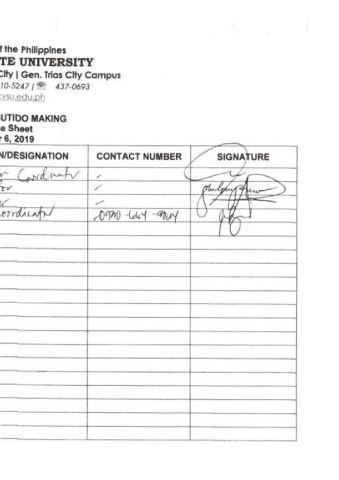 f the Philippines
TE UNIVERSITY
City | Gen. Trias City Campus
10-5247 | ☏ 437-0693
cvsu.edu.ph
BUTIDO MAKING
e Sheet
r 6, 2019
N/DESIGNATION CONTACT NUMBER SIGNATURE
Coordinator
or
oordinator